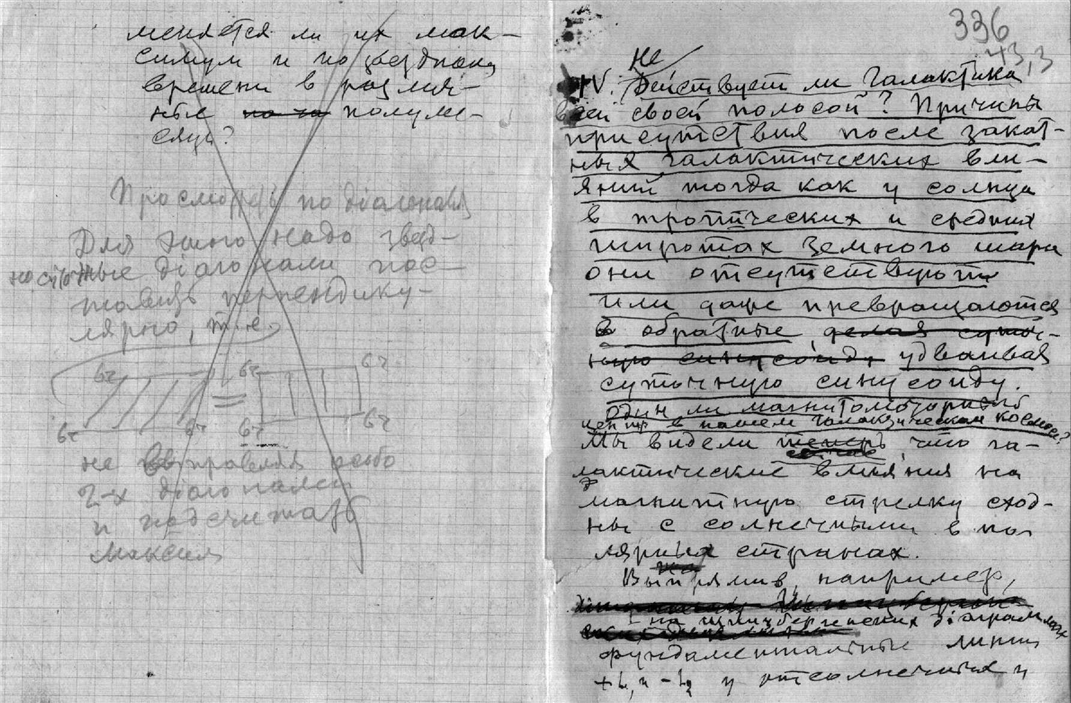 меняется ли их мак-
симум и по звездному
времени в различ-
ные полуме-
сяцы?
Проследить по діагонали
Для этого надо звезд-
ные діагонали пос-
тавить перпендику-
лярно, т.е.
6ч 6ч 6ч
=
6ч 6ч 6ч 6ч
не выправляя
2-х діагоналей
и подсчитать
максим
336
43,3
не
IV. Действует ли Галактика
всей своей полосой? Причины
присутствия после закат-
ных галактических вли-
яний, тогда как у солнца
в тропических и средних
широтах земного шара
они отсутствуют
или даже превращаются
в обратные делая суточ-
ную синусоиду, удваивая
суточную синусоиду.
Один ли магнитомоторный
центр в нашем галактическом космосе?
Мы видели теперь, что га-
лактические влияния на
магнитную стрелку сход-
ны с солнечными в по-
лярных странах.
Выпрямив, например,
на шпицбергенских діаграммах
фундаментальные линии
+L, и -L, у отсолнечных и